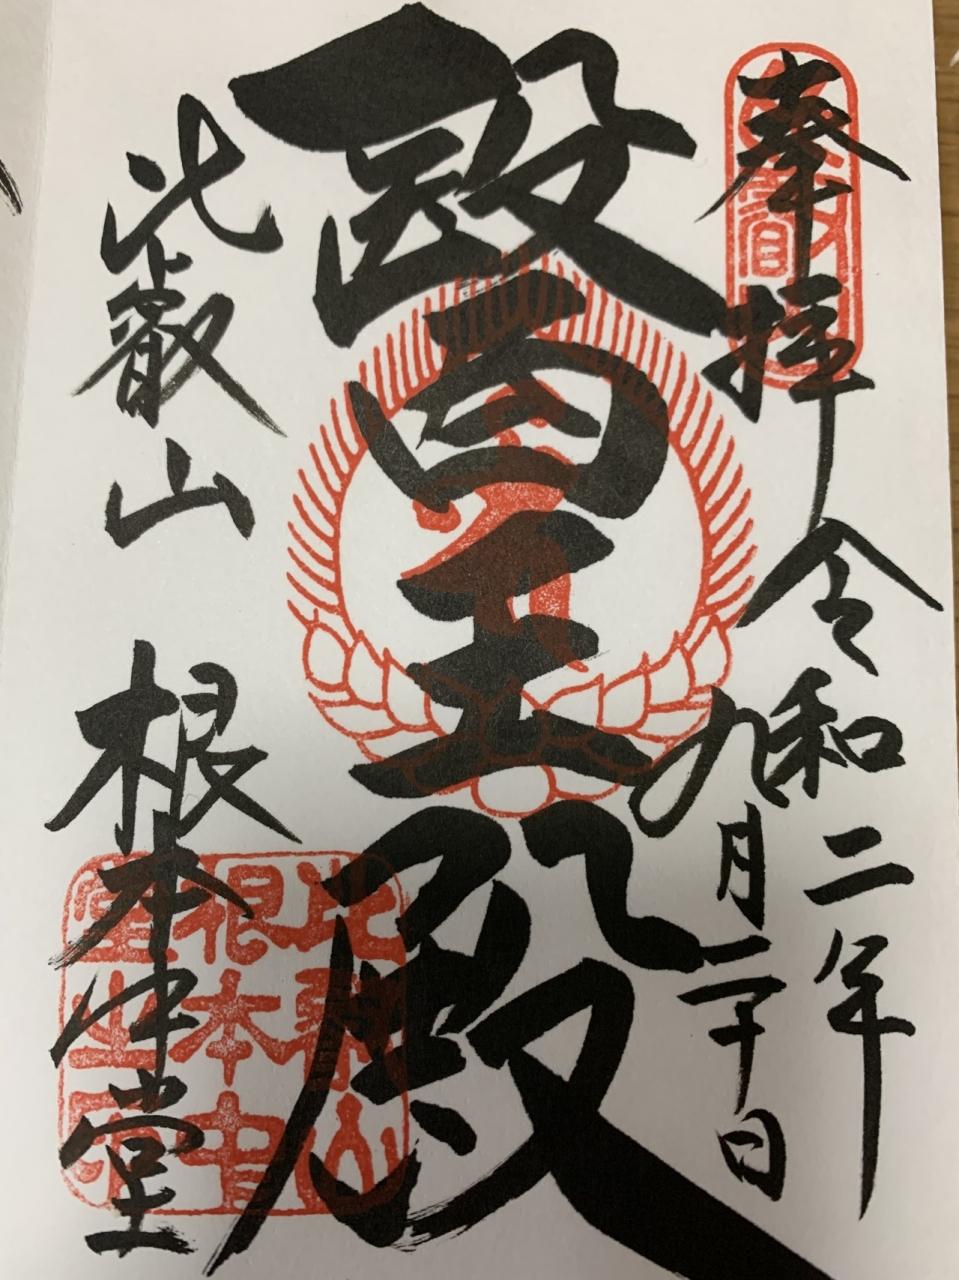 奉拝 令和二年
九月二十日
醫王殿
比叡山 根本中堂
比叡山
根本中
堂之印